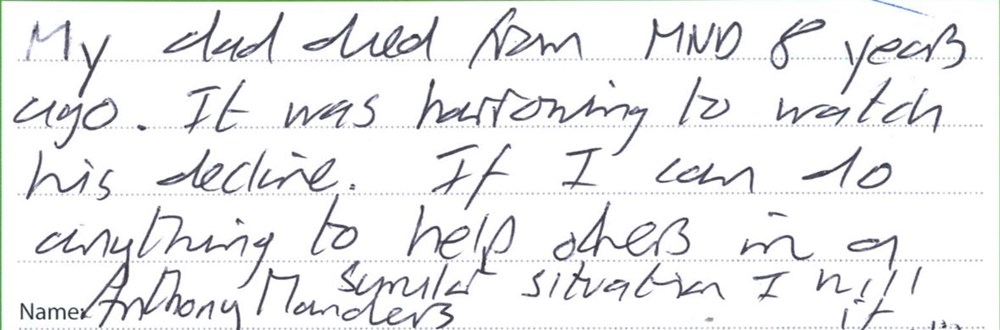 My dad died from MND 8 years
ago. It was harrowing to watch
his decline. If I can do
anything to help others in a
similar situation I will
Name: Anthony Manders
it